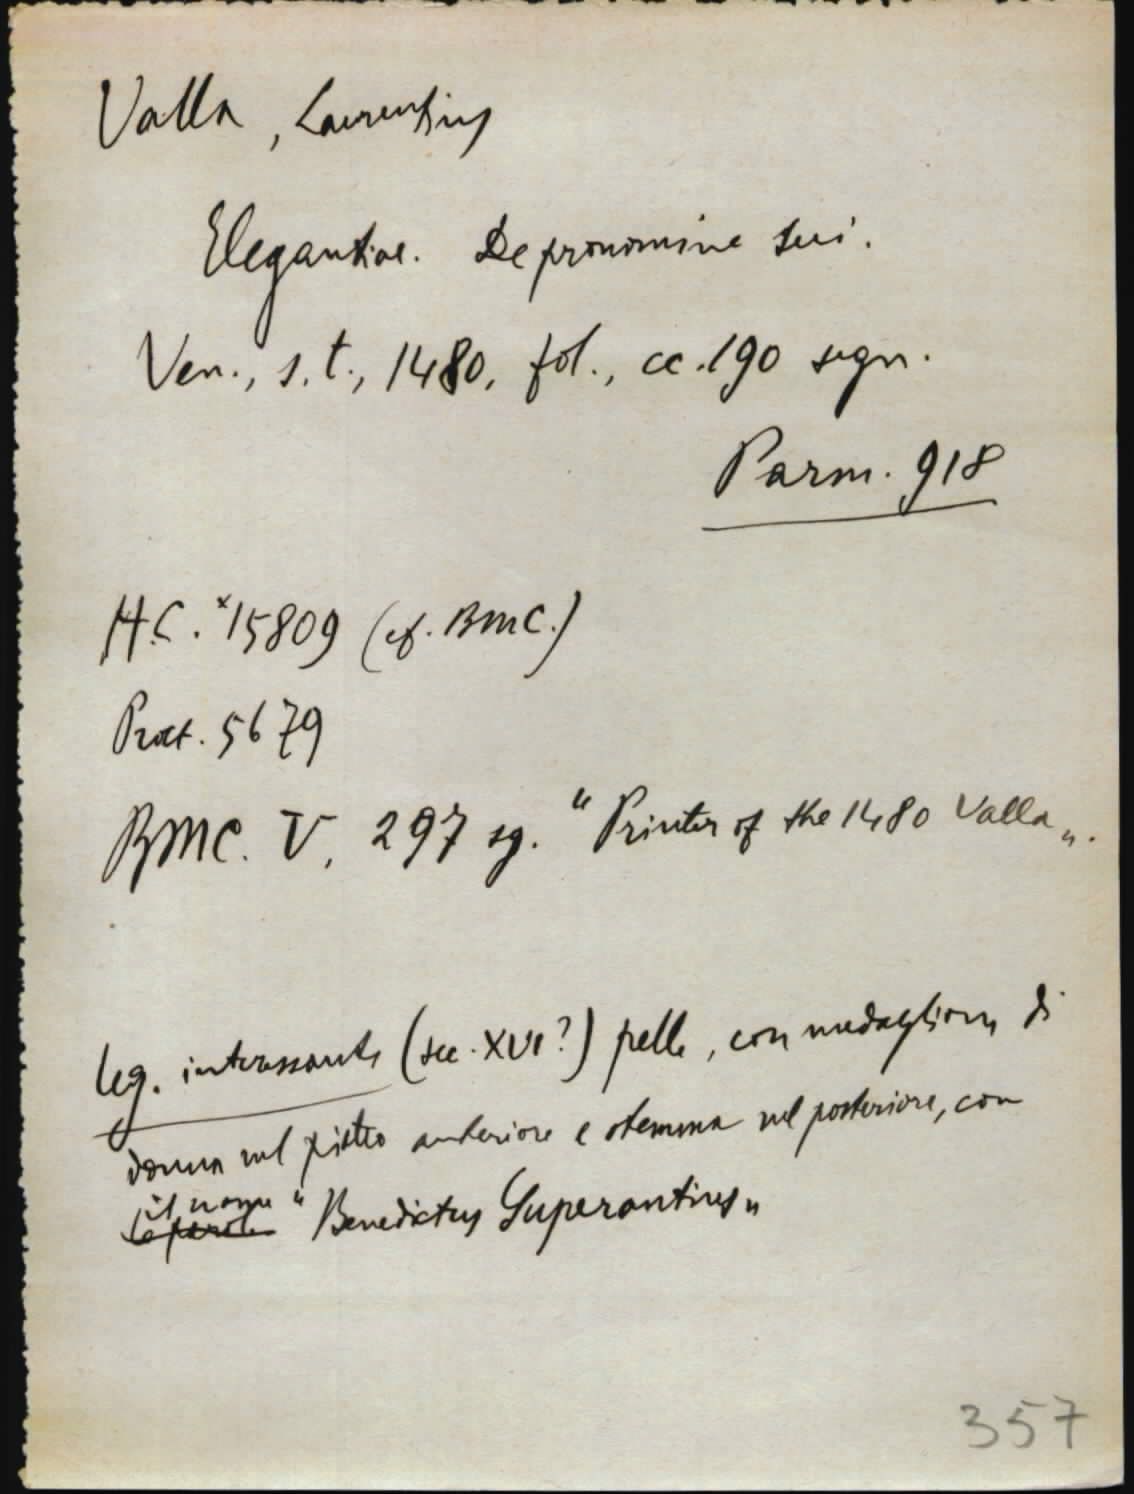 Valla, Laurentius
Elegantiae. De pronomine sui.
Ven., s.t., 1480, fol., cc. 190 segn.
Parm. 918
H.C. *15809 (cf. BMC.)
Proct. 5679
BMC. V, 297 sg. "Printer of the 1480 Valla".
leg. interessante (sec. XVI?) pelle, con medaglione di
donna nel piatto anteriore e stemma nel posteriore, con
il nome "Benedictus Superantius"
le parole
357